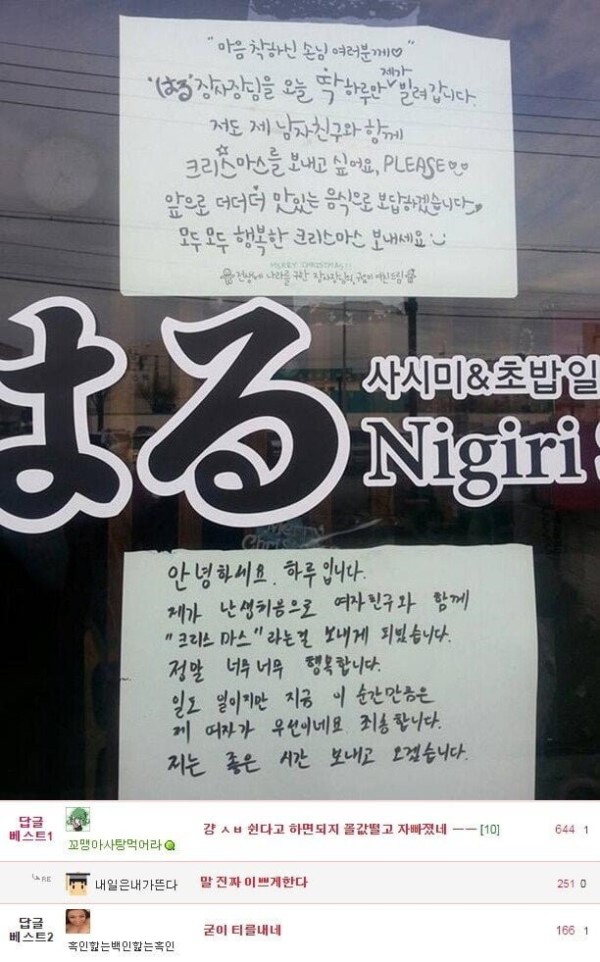 "마음 착하신 손님 여러분께♡"
'はる' 장사장님을 오늘 딱 하루만 제가 빌려갑니다.
저도 제 남자친구와 함께
크리스마스를 보내고 싶어요, PLEASE♡♡
앞으로 더더더 맛있는 음식으로 보답하겠습니다
모두모두 행복한 크리스마스 보내세요
MERRY CHRISTMAS!!
전생에 나라를 구한 장사장님의 여친드림
はる
사시미&초밥일
Nigiri
Merry
Chris
안녕하세요. 하루입니다.
제가 난생처음으로 여자친구와 함께
"크리스마스"라는걸 보내게 되었습니다.
정말 너무너무 행복합니다.
일도 일이지만 지금 이 순간만큼은
제 여자가 우선이네요. 죄송합니다.
저는 좋은 시간 보내고 오겠습니다.
답글
베스트1
꼬맹아사탕먹어라
걍 ㅅㅂ 쉰다고 하면되지 꼴값떨고 자빠졌네 ㅡㅡ [10]
644 1
RE
내일은내가뜬다
말 진짜 이쁘게한다
251 0
답글
베스트2
흑인핥는백인핥는흑인
굳이 티를내네
166 1